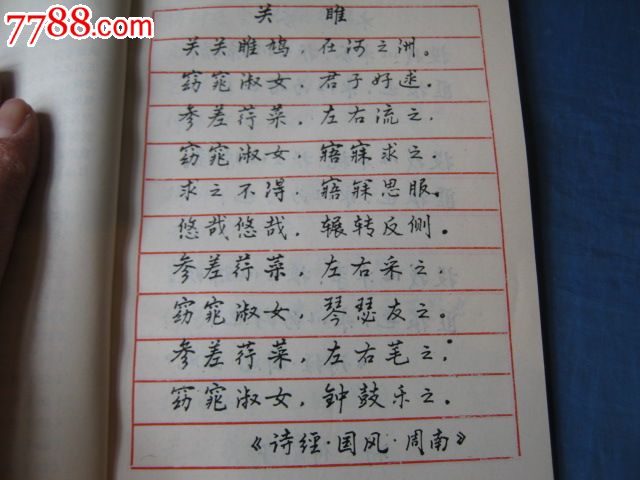 7788.com
关 雎
关关雎鸠，在河之洲。
窈窕淑女，君子好逑。
参差荇菜，左右流之。
窈窕淑女，寤寐求之。
求之不得，寤寐思服。
悠哉悠哉，辗转反侧。
参差荇菜，左右采之。
窈窕淑女，琴瑟友之。
参差荇菜，左右芼之；
窈窕淑女，钟鼓乐之。
《诗经·国风·周南》